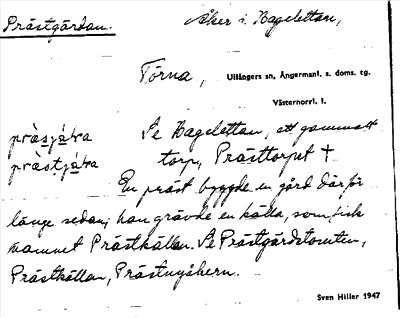 Prästgårdan.
Åker i Hagelettan,
Törna, Ullångers sn, Ångermanl. s. doms. tg.
Västernorrl. l.
Se Hagelettan, ett gammalt
torp, Prästtorpet †
En präst byggde en gård därför
länge sedan; han grävde en källa, som fick
namnet Prästkällan. Se Prästgårdstomten,
Prästkällan, Prästnyåkern.
Sven Hiller 1947